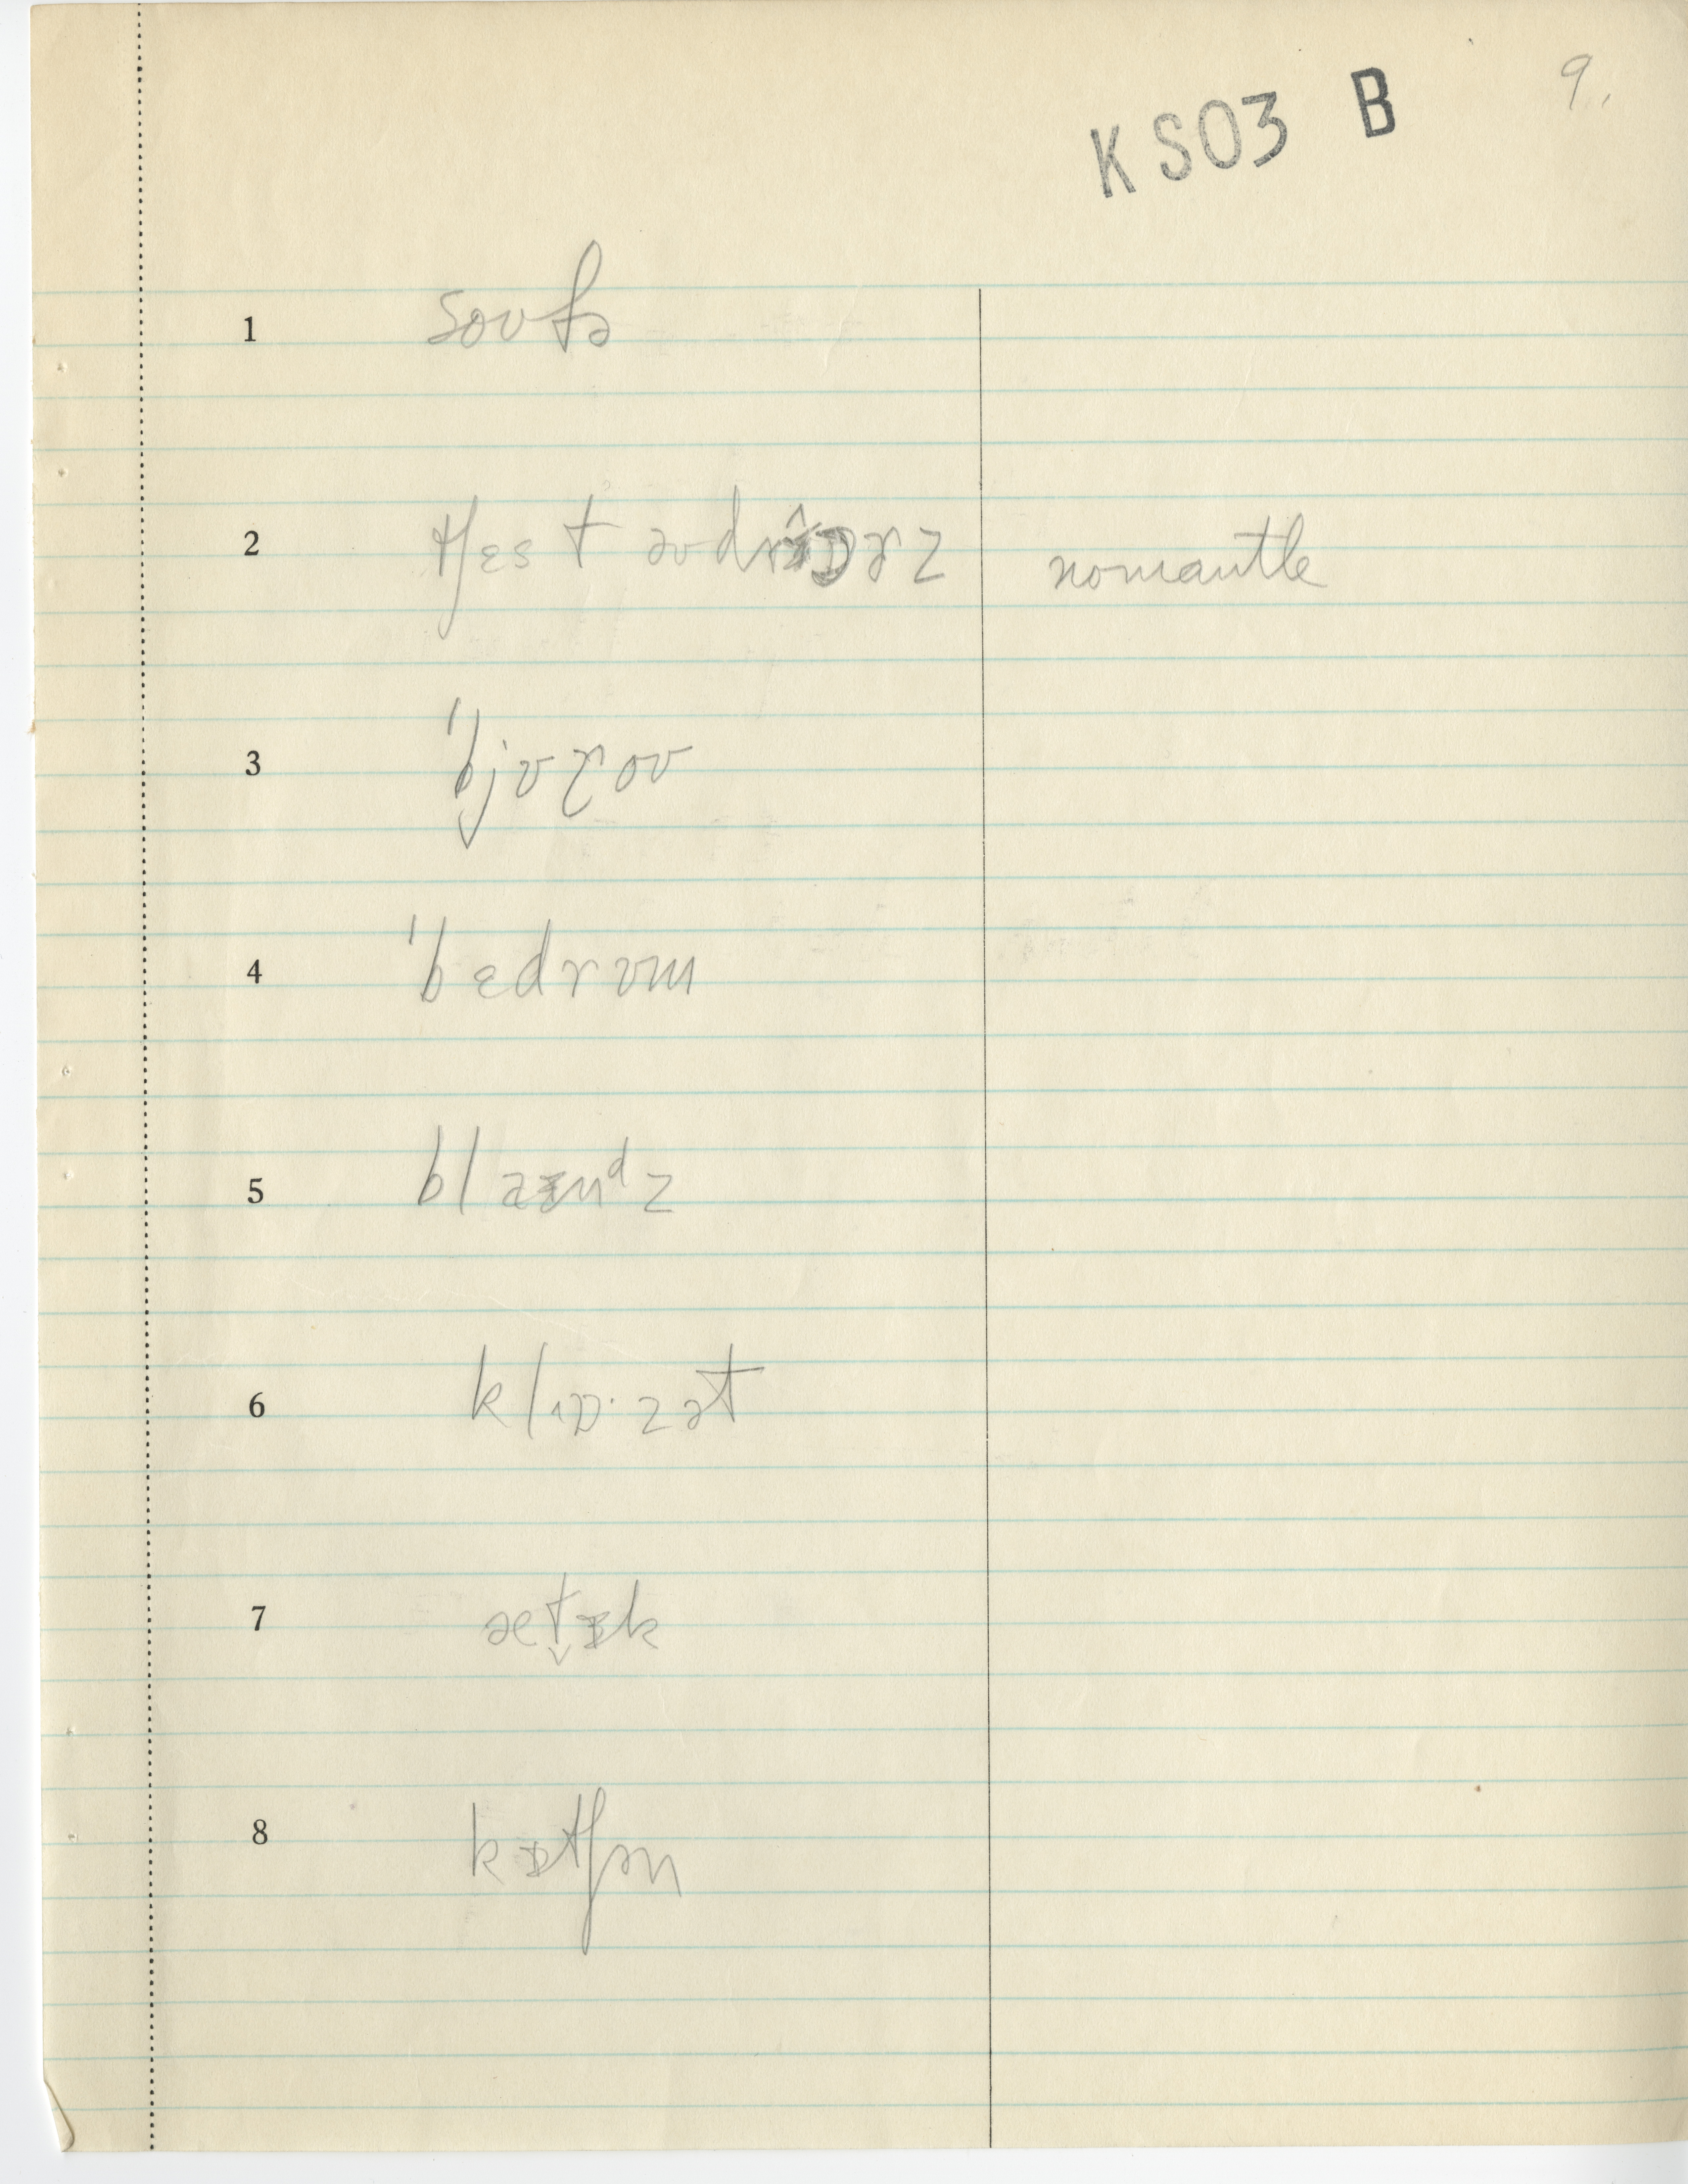 KSO3 B 9.
1 soʊfə
2 tʃɛst əv drɔərz nomantle
3 'bjʊroʊ
4 'bɛdrʊm
5 blaɪnᵈz
6 klɒ·zət
7 ætɪk
8 kɪtʃən